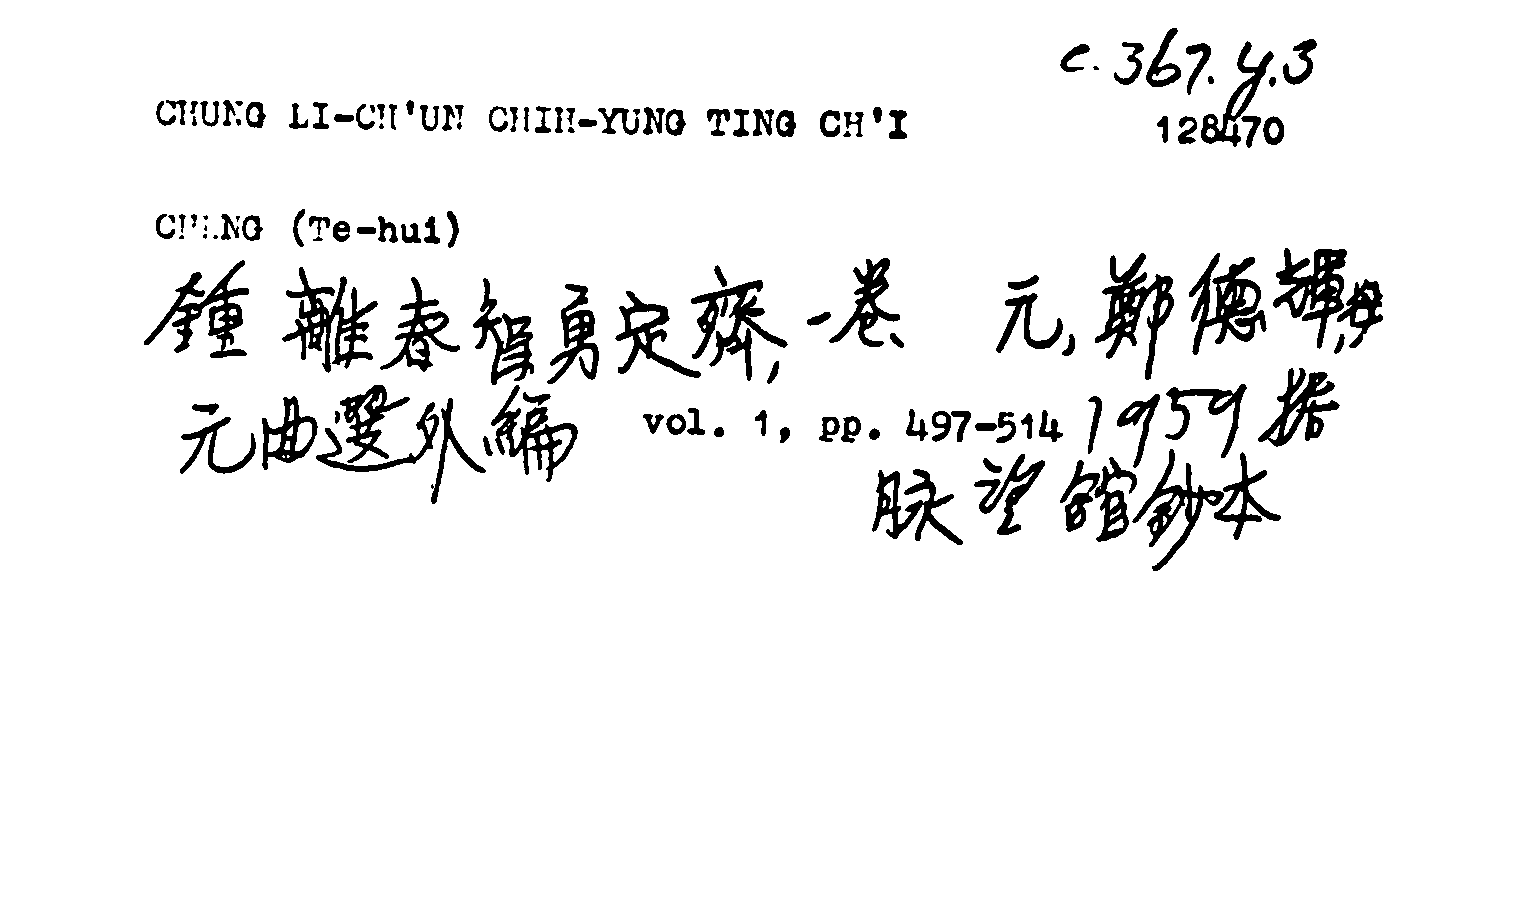 c. 367. y. 3
CHUNG LI-CH'UN CHIH-YUNG TING CH'I
128470
CHENG (Te-hui)
鍾離春智勇定齊, 一卷、 元, 鄭德輝,
元曲選外編 vol. 1, pp. 497-514 1959 据
脉望館鈔本